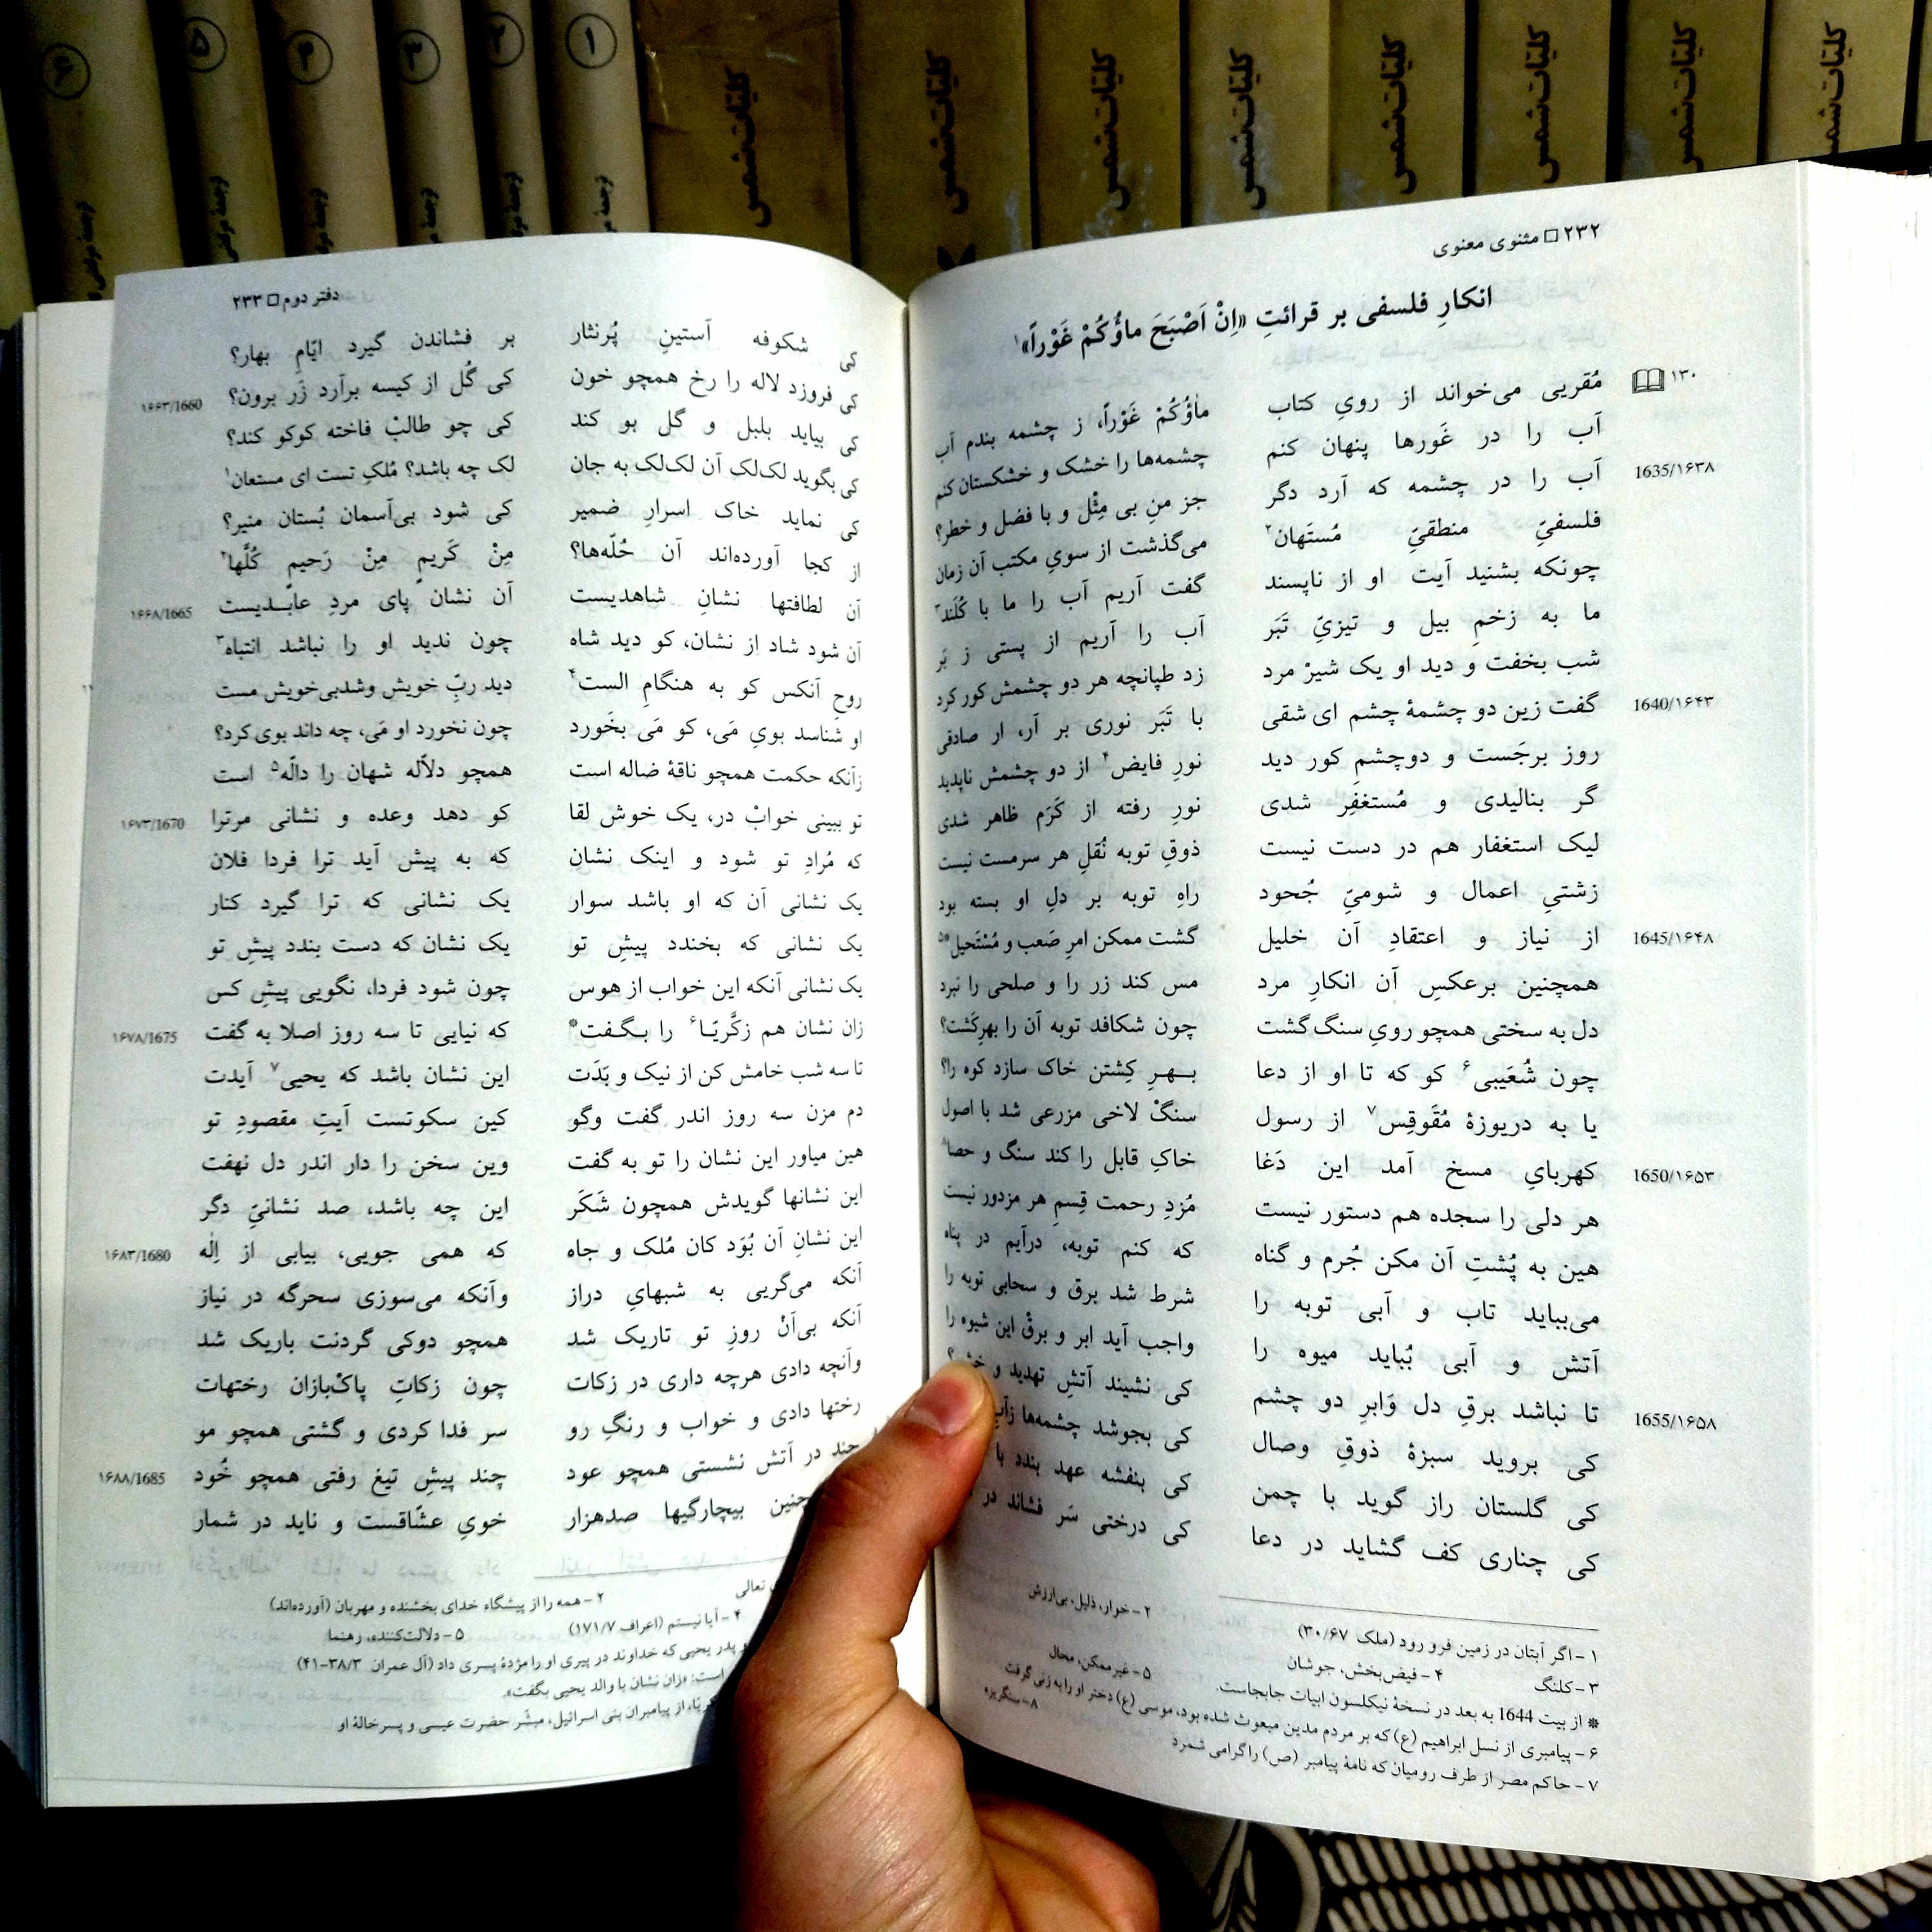 ۶
۵
۴
۳
۲
۱
کلیّات شمس
کلیّات شمس
کلیّات شمس
کلیّات شمس
کلیّات شمس
کلیّات شمس
کلیّات شمس
کلیّات شمس
۲۳۲ □ مثنوی معنوی
انکارِ فلسفی بر قرائتِ «اِنْ اَصْبَحَ ماؤُکُمْ غَوْراً»۱
۱۳۰ مُقریی می‌خواند از رویِ کتاب ماؤُکُمْ غَوْراً، ز چشمه بندم آب
آب را در غَورها پنهان کنم چشمه‌ها را خشک و خشکستان کنم
1635/۱۶۳۸ آب را در چشمه که آرد دگر جز منِ بی مِثْل و با فضل و خطر؟
فلسفیِّ منطقیِّ مُستَهان۲ می‌گذشت از سویِ مکتب آن زمان
چونکه بشنید آیت او از ناپسند گفت آریم آب را ما با کُلَند۳
ما به زخمِ بیل و تیزیِّ تَبَر آب را آریم از پستی ز بَر
شب بخفت و دید او یک شیرْ مرد زد طپانچه هر دو چشمش کور کرد
1640/۱۶۴۳ گفت زین دو چشمهٔ چشم ای شقی با تَبَر نوری بر آر، ار صادقی
روز برجَست و دوچشمِ کور دید نورِ فایض۴ از دو چشمش ناپدید
گر بنالیدی و مُستغفَِر شدی نورِ رفته از کَرَم ظاهر شدی
لیک استغفار هم در دست نیست ذوقِ توبه نُقلِ هر سرمست نیست
زشتیِ اعمال و شومیِّ جُحود راهِ توبه بر دلِ او بسته بود
1645/۱۶۴۸ از نیاز و اعتقادِ آن خلیل گشت ممکن امرِ صَعب و مُسْتَحیل*۵
همچنین برعکسِ آن انکارِ مرد مس کند زر را و صلحی را نبرد
دل به سختی همچو رویِ سنگ گشت چون شکافد توبه آن را بهرِکَشت؟
چون شُعَیبی۶ کو که تا او از دعا بـهـرِ کِشتن خاک سازد کوه را؟
یا به دریوزهٔ مُقَوقِس۷ از رسول سنگْ لاخی مزرعی شد با اصول
1650/۱۶۵۳ کهربایِ مسخ آمد این دَغا خاکِ قابل را کند سنگ و حصا۸
هر دلی را سجده هم دستور نیست مُزدِ رحمت قِسمِ هر مزدور نیست
هین به پُشتِ آن مکن جُرم و گناه که کنم توبه، درآیم در پناه
می‌بباید تاب و آبی توبه را شرط شد برق و سحابی توبه را
آتش و آبی بُباید میوه را واجب آید ابر و برقْ این شیوه را
1655/۱۶۵۸ تا نباشد برقِ دل وَابرِ دو چشم کی نشیند آتشِ تهدید و
کی بروید سبزهٔ ذوقِ وصال کی بجوشد چشمه‌ها زآبِ
کی گلستان راز گوید با چمن کی بنفشه عهد بندد با
کی چناری کف گشاید در دعا کی درختی سَر فشاند در
۱- اگر آبتان در زمین فرو رود (ملک ۳۰/۶۷) ۲- خوار، ذلیل، بی‌ارزش
۳- کلنگ ۴- فیض‌بخش، جوشان ۵- غیرممکن، محال
* از بیت 1644 به بعد در نسخهٔ نیکلسون ابیات جابجاست.
۶- پیامبری از نسل ابراهیم (ع) که بر مردم مدین مبعوث شده بود، موسی (ع) دختر او را به زنی گرفت
۷- حاکم مصر از طرف رومیان که نامهٔ پیامبر (ص) را گرامی شمرد ۸- سنگریزه
دفتر دوم □ ۲۳۳
کی شکوفه آستینِ پُرنثار بر فشاندن گیرد ایّامِ بهار؟
کی فروزد لاله را رخ همچو خون کی گُل از کیسه برآرد زَر برون؟ ۱۶۶۳/1660
کی بیاید بلبل و گل بو کند کی چو طالبْ فاخته کوکو کند؟
کی بگوید لک‌لک آن لک‌لک به جان لک چه باشد؟ مُلکِ تست ای مستعان۱
کی نماید خاک اسرارِ ضمیر کی شود بی‌آسمان بُستان منیر؟
از کجا آورده‌اند آن حُلّه‌ها؟ مِنْ کَریمٍ مِنْ رَحیمٍ کُلَّها۲
آن لطافتها نشانِ شاهدیست آن نشان پای مردِ عابـدیست ۱۶۶۸/1665
آن شود شاد از نشان، کو دید شاه چون ندید او را نباشد انتباه۳
روحِ آنکس کو به هنگامِ الست۴ دید ربِّ خویش وشدبی‌خویش مست
او شناسد بویِ مَی، کو مَی بخَورد چون نخورد او مَی، چه داند بوی کرد؟
زآنکه حکمت همچو ناقهٔ ضاله است همچو دلاّله شهان را دالّه۵ است
تو ببینی خوابْ در، یک خوش لقا کو دهد وعده و نشانی مرترا ۱۶۷۳/1670
که مُرادِ تو شود و اینک نشان که به پیش آید ترا فردا فلان
یک نشانی آن که او باشد سوار یک نشانی که ترا گیرد کنار
یک نشانی که بخندد پیشِ تو یک نشان که دست بندد پیشِ تو
یک نشانی آنکه این خواب از هوس چون شود فردا، نگویی پیشِ کس
زان نشان هم زکَّریّـا۶ را بـگـفت* که نیایی تا سه روز اصلا به گفت ۱۶۷۸/1675
تا سه شب خامش کن از نیک و بَدَت این نشان باشد که یحیی۷ آیدت
دم مزن سه روز اندر گفت وگو کین سکوتست آیتِ مقصودِ تو
هین میاور این نشان را تو به گفت وین سخن را دار اندر دل نهفت
این نشانها گویدش همچون شَکَر این چه باشد، صد نشانیِّ دگر
این نشانِ آن بُوَد کان مُلک و جاه که همی جویی، بیابی از اِلٰه ۱۶۸۳/1680
آنکه می‌گریی به شبهایِ دراز وآنکه می‌سوزی سحرگه در نیاز
آنکه بی‌آنْ روزِ تو تاریک شد همچو دوکی گردنت باریک شد
وآنچه دادی هرچه داری در زکات چون زکاتِ پاکْ‌بازان رختهات
رختها دادی و خواب و رنگِ رو سر فدا کردی و گشتی همچو مو
چند در آتش نشستی همچو عود چند پیشِ تیغ رفتی همچو خُود ۱۶۸۸/1685
بیچارگیها صدهزار خویِ عشّاقست و ناید در شمار
تعالی ۲- همه را از پیشگاه خدای بخشنده و مهربان (آورده‌اند)
۴- آیا نیستم (اعراف ۱۷۱/۷) ۵- دلالت‌کننده، رهنما
و پدر یحیی که خداوند در پیری او را مژدهٔ پسری داد (آل عمران ۳۸/۳-۴۱)
است: «زان نشان با والد یحیی بگفت».
از پیامبران بنی اسرائیل، مبشّر حضرت عیسی و پسرخالهٔ او